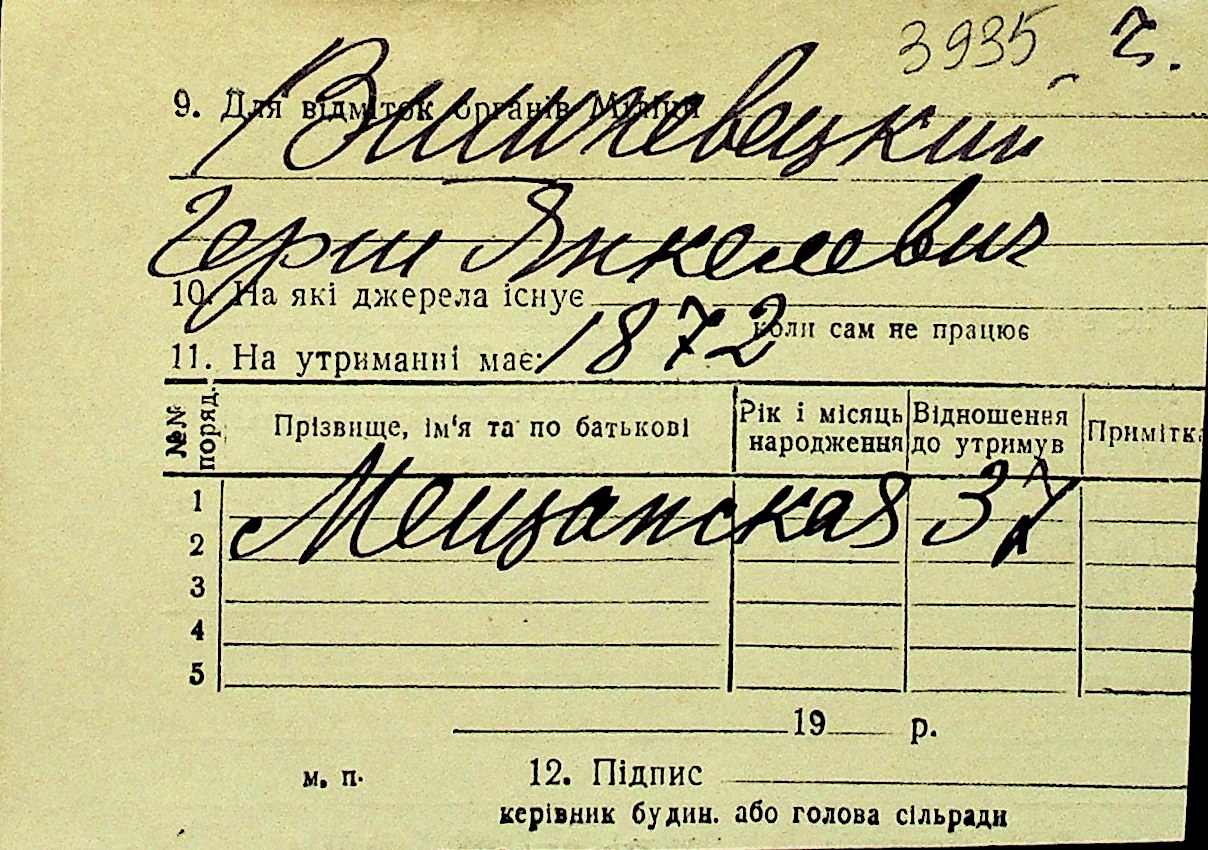 3935 ч.
9. Для відміток органів Міліції
Вишневецкий
Герш Янкелевич
10. На які джерела існує
коли сам не працює
1872
11. На утриманні має:
№№ поряд. Прізвище, ім'я та по батькові Рік і місяць народження Відношення до утримув Примітка
1
Мещанская 37
2
3
4
5
19 р.
м. п. 12. Підпис
керівник будин. або голова сільради